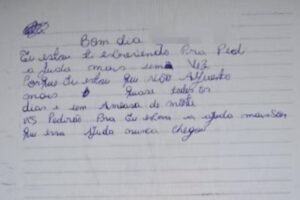 Bom dia
Eu estou Ti escrevendo Pra Pedi
a Juda mais uma Vez
Porque Eu estou Que não Aguento
mais quase todos os
dias e sem Ameasa de morte
VS Pedirão Pra Eu espera a ajuda mais
Que essa Ajuda nunca chegou